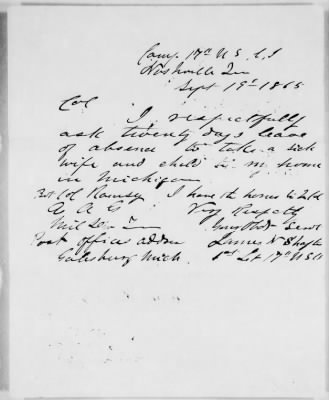 Camp 17th U S C I
Nashville Ten
Sept 19th 1865
Col
I respectfully
ask twenty days leave
of absence to take a sick
wife and child to my home
in Michigan
Bvt Col Ramsey I have the honor to
A A G Very Respctly
Mil Div Ten Your Obdt Servt
Post office address James N
Galesburg Mich. 1st Lt 17th U S C I